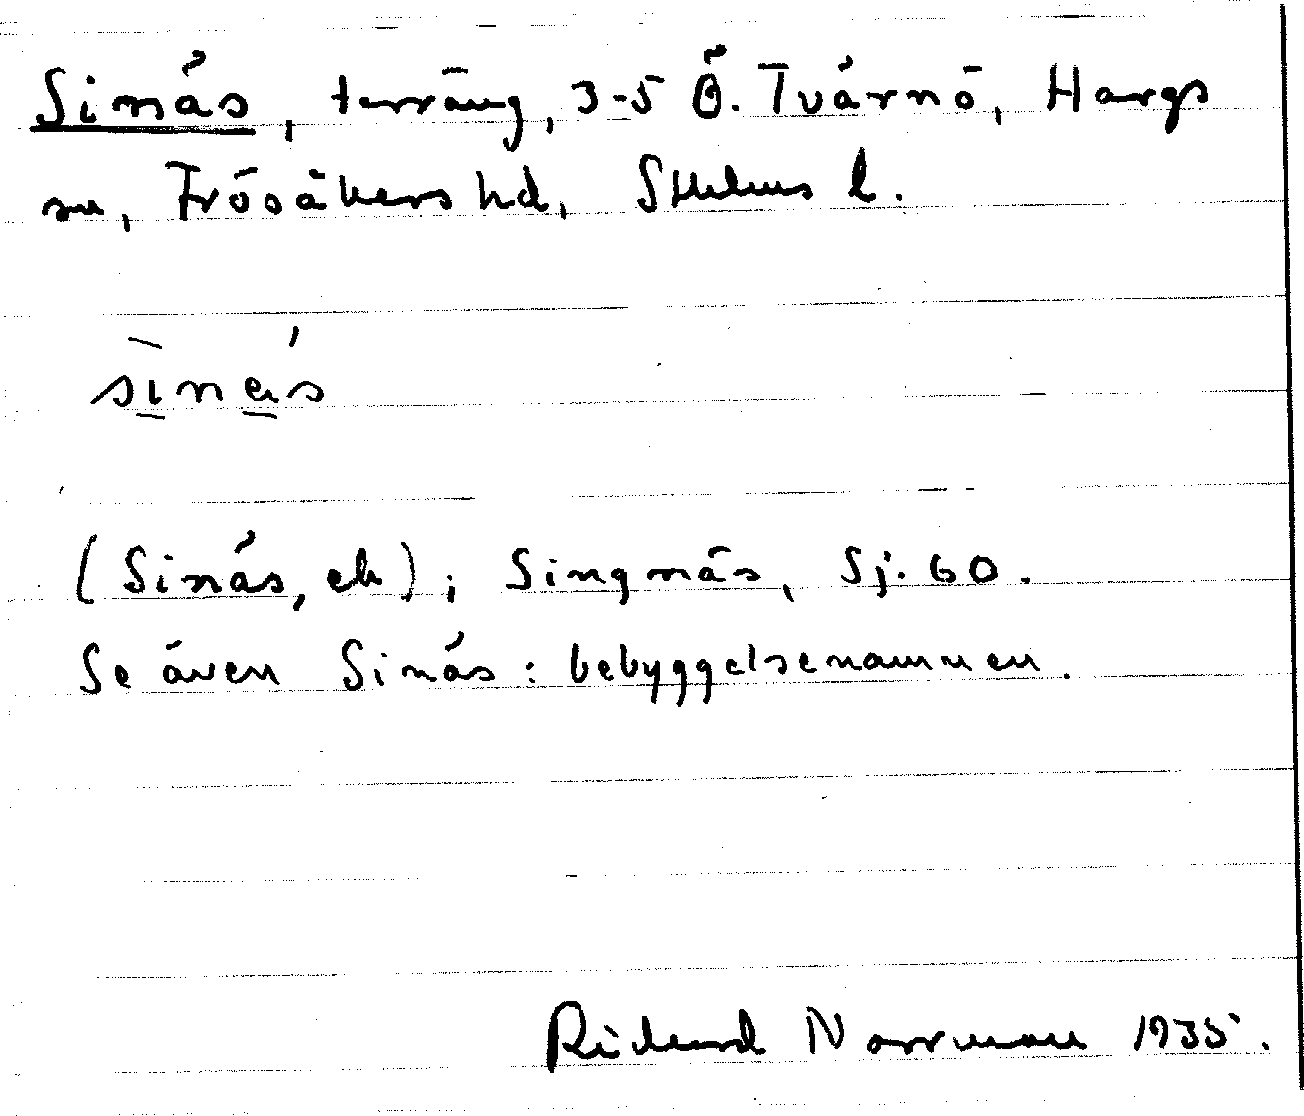 Sinäs, terräng, 3-5 Ö. Tvärnö, Hargs
sn, Frösåkers hd, Sthlms l.
sìnäs
(Sinäs, ek); Singnäs, Sj. 60.
Se även Sinäs: bebyggelsenamnen.
Richard Norrman 1935.